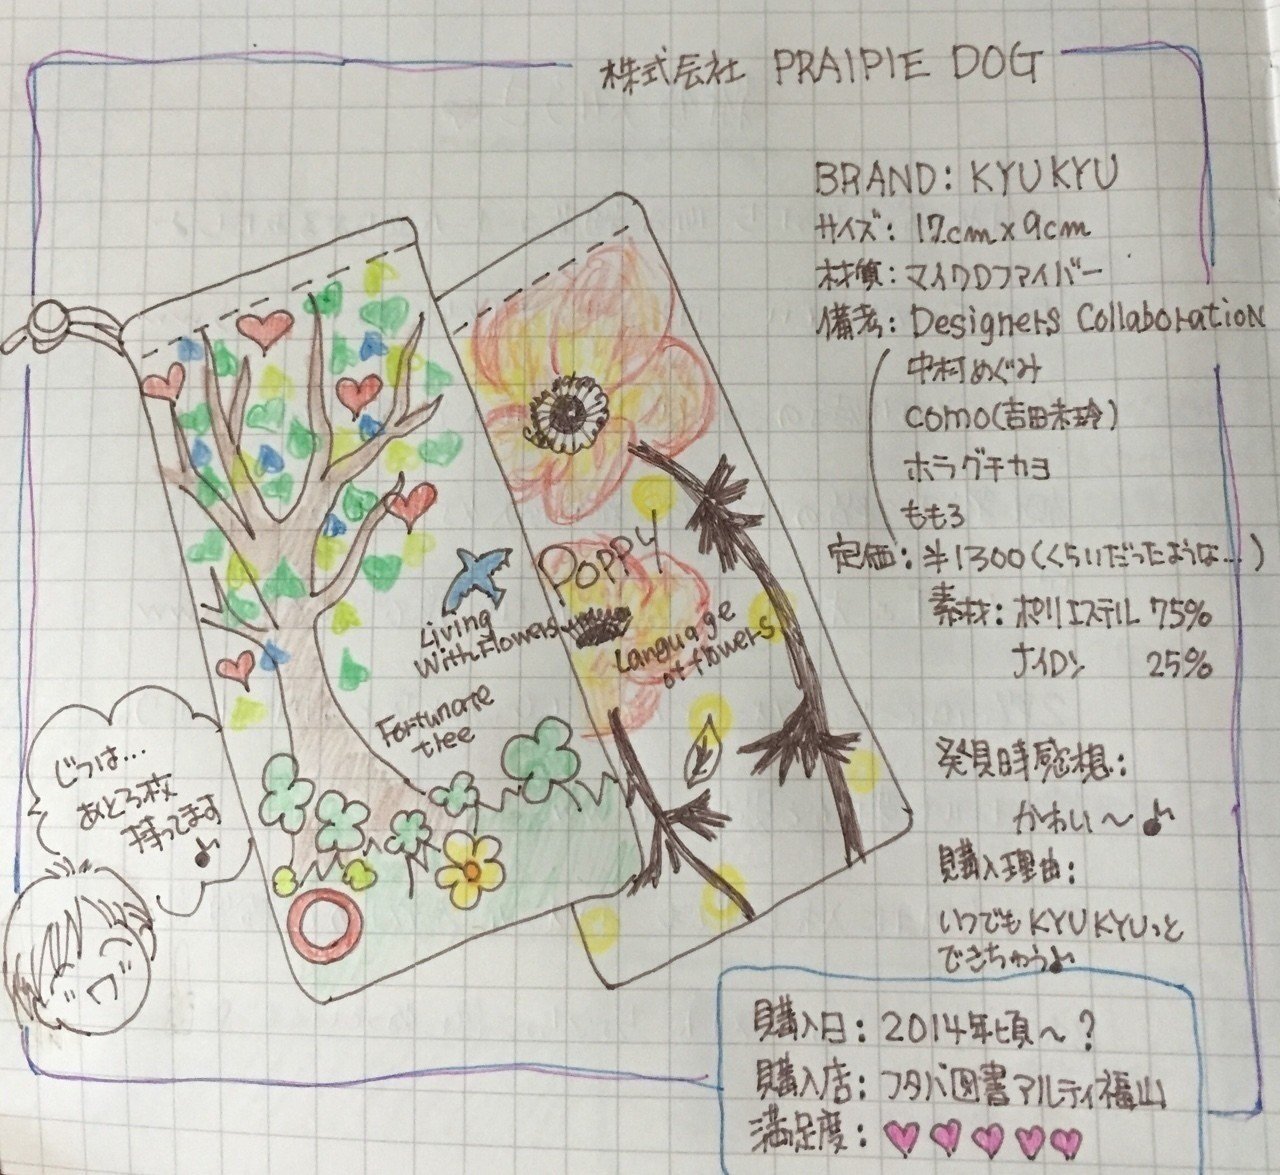 株式会社 PRAIPIE DOG
BRAND: KYUKYU
サイズ: 17cm×9cm
材質: マイクロファイバー
備考: Designers Collaboration
中村めぐみ
como(吉田未玲)
ホラグチカヨ
ももろ
定価: ¥1300(くらいだったような…)
素材: ポリエステル 75%
ナイロン 25%
発見時感想:
かわい〜♪
購入理由:
いつでもKYUKYUっと
できちゃう♪
購入日: 2014年頃〜?
購入店: フタバ図書アルティ福山
満足度: ♥♥♥♥♥
POPPY
Language
of flowers
Living
With Flowers
Fortunate
tree
じつは…
あと3枚
持ってます
♪